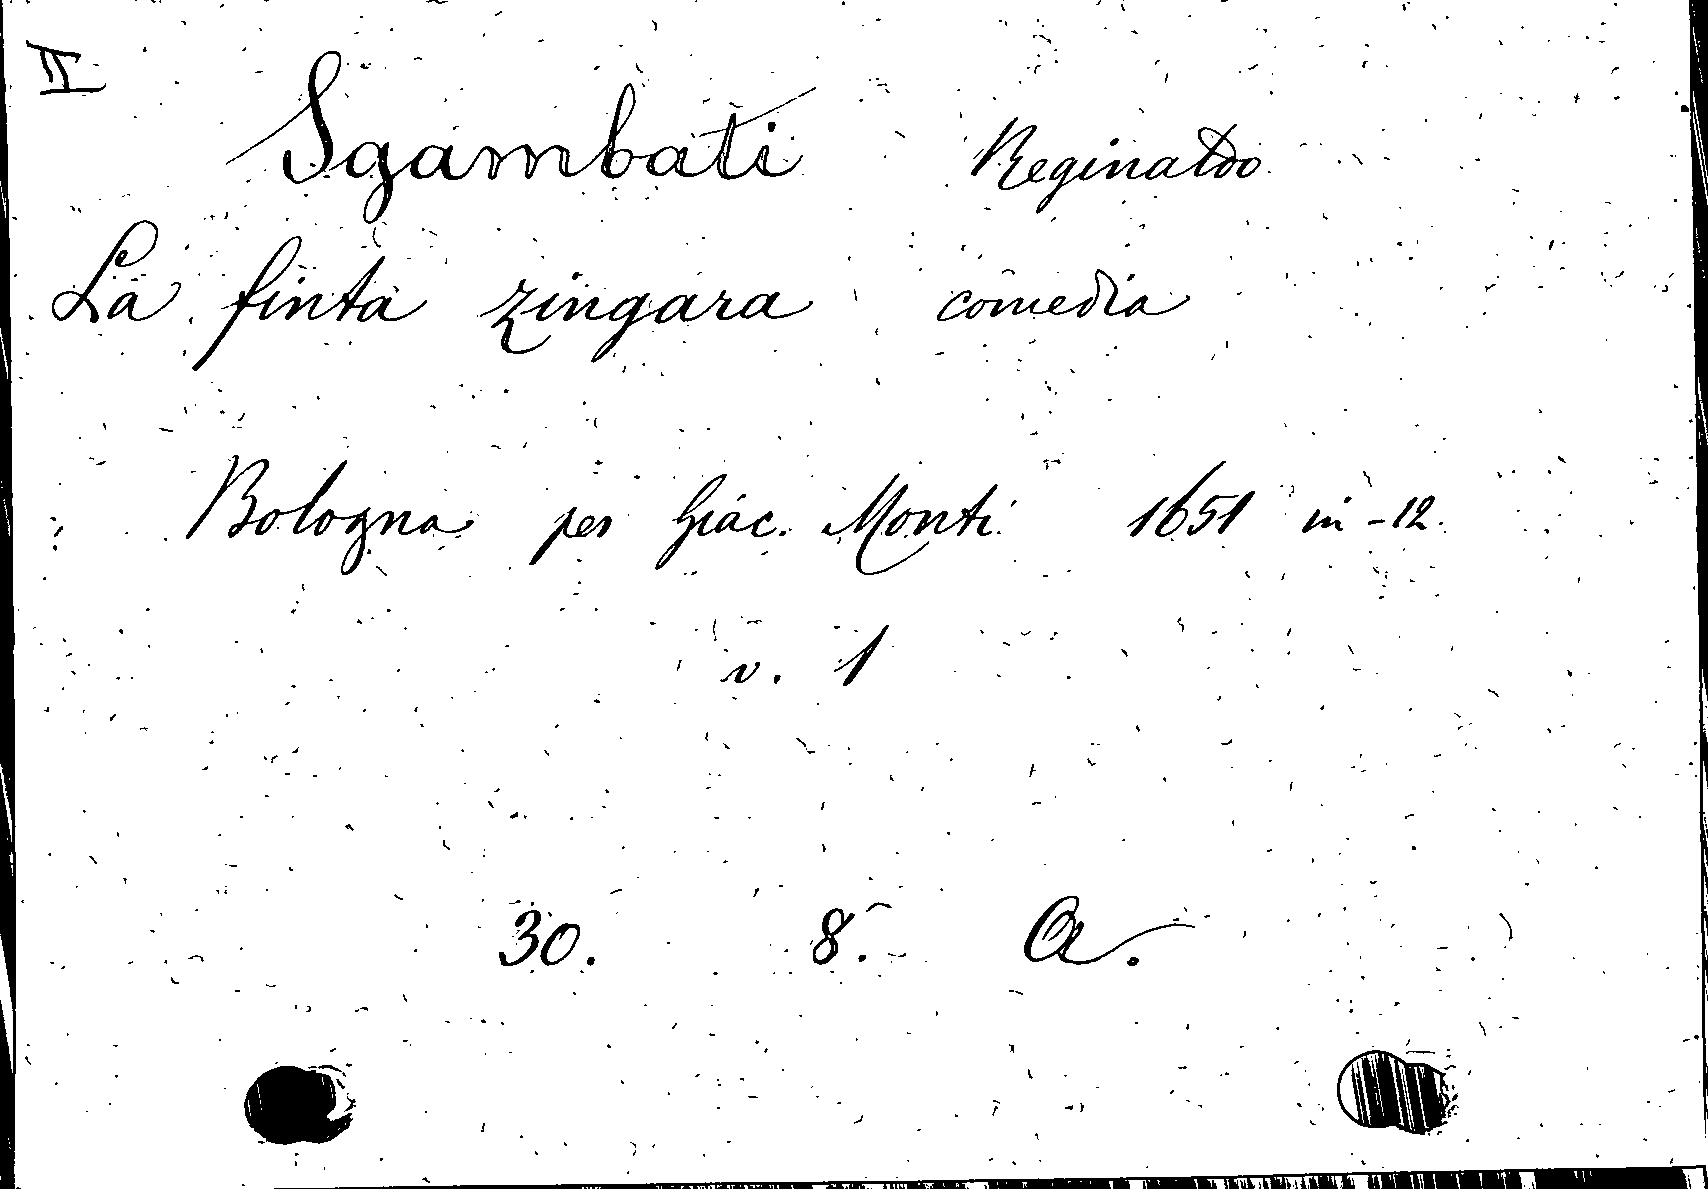 II
Sgambati Reginaldo
La finta zingara comedia
Bologna per Giac. Monti 1651 in-12.
v. 1
30. 8. A.